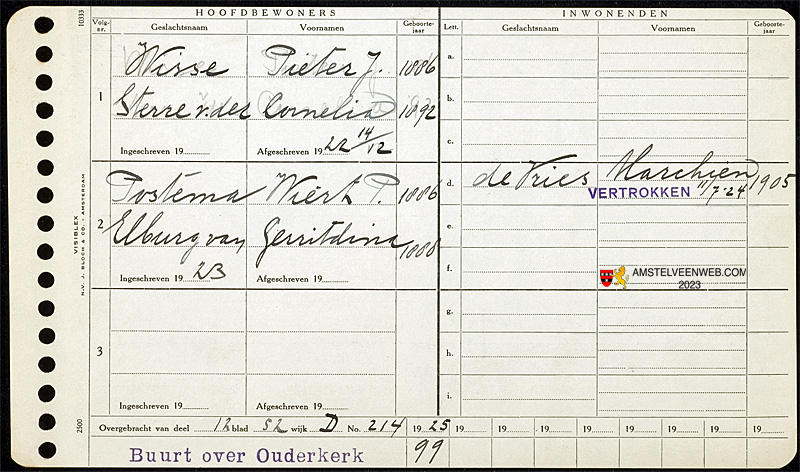 HOOFDBEWONERS
INWONENDEN
Volg-
nr.
Geslachtsnaam
Voornamen
Geboorte-
jaar
Lett.
Geslachtsnaam
Voornamen
Geboorte-
jaar
1
Wisse Pieter J. 1886
Sterre v. der Cornelia 1892
Ingeschreven 19
Afgeschreven 19 22 14/12
2
Postema Wiert P. 1886
Elburg van Gerritdina 1888
Ingeschreven 19 23
3
Ingeschreven 19
Afgeschreven 19
a.
b.
c.
d. de Vries Harchien 1905
VERTROKKEN 11/7-24
e.
f.
g.
h.
i.
AMSTELVEENWEB.COM
2023
Overgebracht van deel 12 blad 52 wijk D No. 214 19 25 19 19 19 19 19 19 19 19
Buurt over Ouderkerk 99
10333
VISIBLEX
N.V. J. BLOCH & CO. - AMSTERDAM
2500